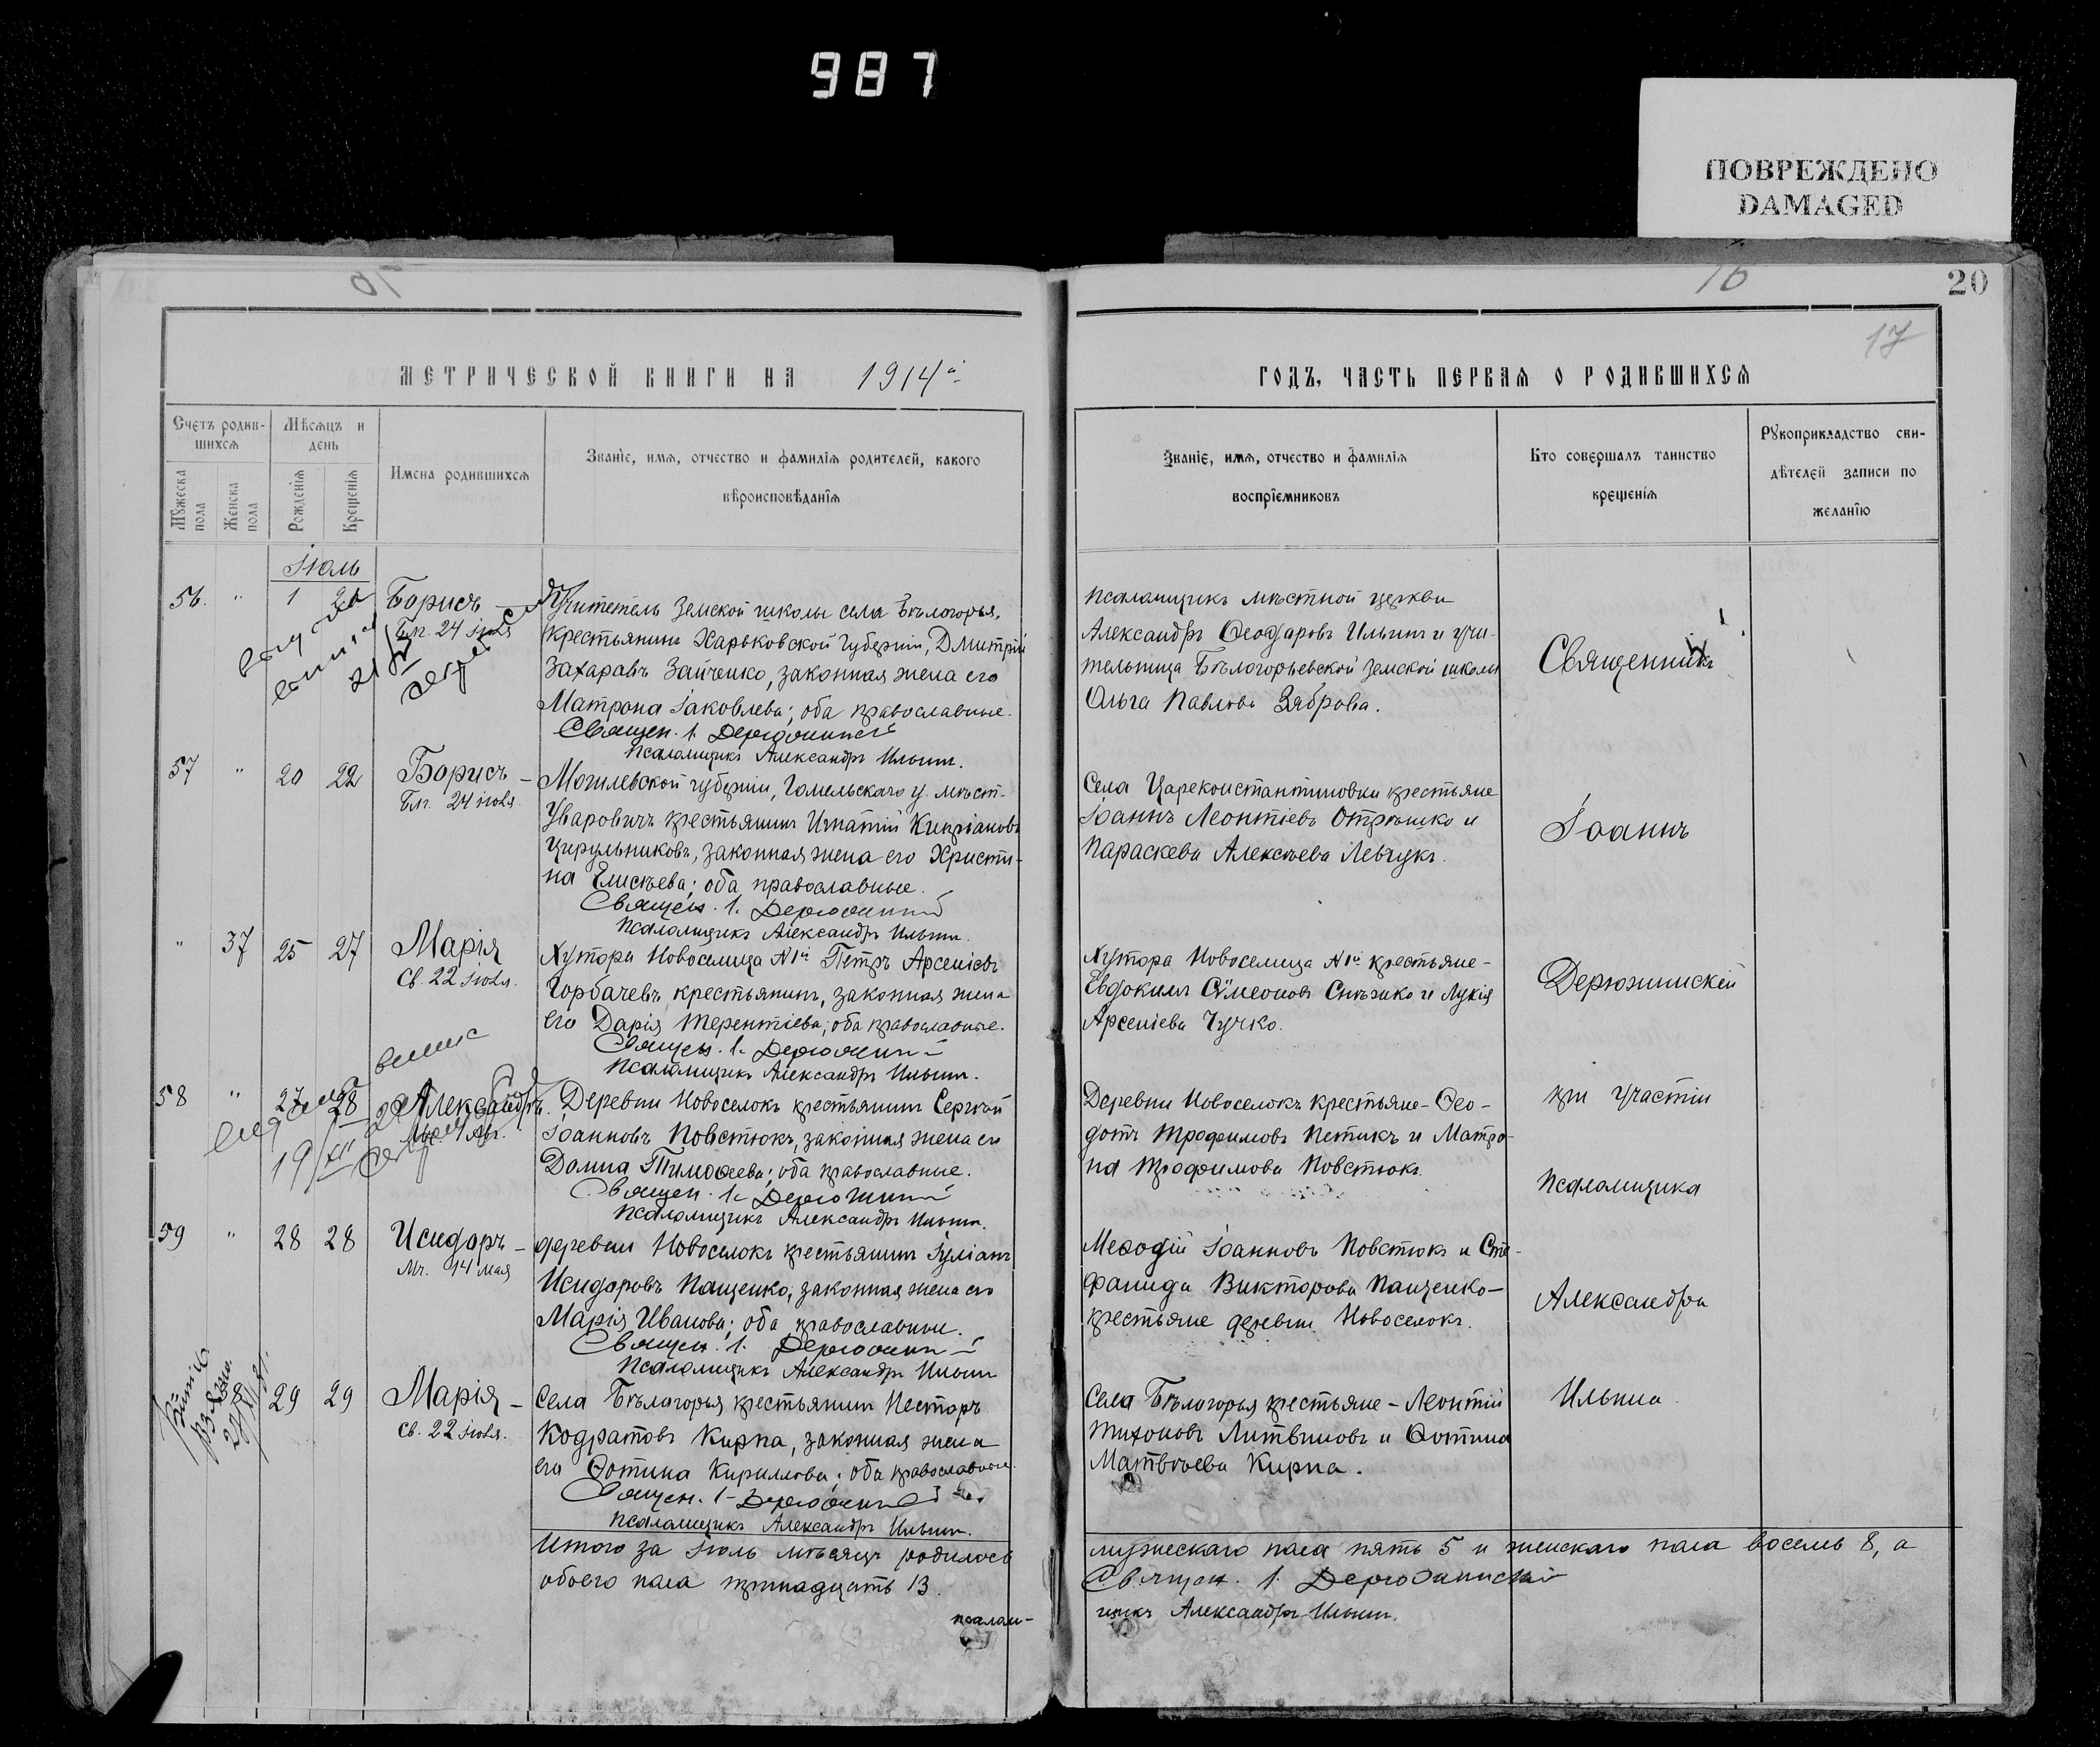 987
ПОВРЕЖДЕНО
DAMAGED
20
16
17
МЕТРИЧЕСКОЙ КНИГИ НА 1914й
ГОДЪ, ЧАСТЬ ПЕРВАЯ О РОДИВШИХСЯ
Счетъ родив-
шихся
Мѣсяцъ и
день
Мужеска
пола
Женска
пола
Рожденія
Крещенія
Имена родившихся
Званіе, имя, отчество и фамилія родителей, какого
вѣроисповѣданія
Званіе, имя, отчество и фамилія
воспріемниковъ
Кто совершалъ таинство
крещенія
Рукоприкладство сви-
дѣтелей записи по
желанію
Іюль
56. " 1 20 Борисъ
Бл. 24 іюля
Учитель Земской школы села Бѣлогорья,
крестьянинъ Харьковской губерніи, Дмитрій
Захаровъ Зайченко, законная жена его
Матрона Іаковлева; оба православные.
Священ. І.
Псаломщикъ Александръ Ильинъ.
Псаломщикъ мѣстной церкви
Александръ Ѳеодоровъ Ильинъ и учи-
тельница Бѣлогорьевской Земской школы
Ольга Павлова Зяброва.
Священникъ
57 " 20 22 Борисъ –
Бл. 24 іюля.
Могилевской губерніи, Гомельскаго у. мѣст.
Уваровичъ крестьянинъ Игнатій Кипріановъ
Цирульниковъ, законная жена его Христи-
на Елисѣева; оба православные.
Священ. І.
Псаломщикъ Александръ Ильинъ.
Села Цареконстантиновки крестьяне
Іоаннъ Леонтіевъ Отрѣшко и
Параскева Алексѣева Левчукъ.
Іоаннъ
" 37 25 27 Марія
Св. 22 іюля.
Хутора Новоселица №1й Петръ Арсеніевъ
Горбачевъ крестьянинъ, законная жена
его Дарія Терентіева; оба православные.
Священ. І.
Псаломщикъ Александръ Ильинъ.
Хутора Новоселица №1й крестьяне –
Евдокимъ Сѵмеоновъ Снѣжко и Лукія
Арсеніева Чучко.
Дерюжинскій
58 " 27 28 Александръ.
Деревни Новоселокъ крестьянинъ Сергѣй
Іоанновъ Повстюкъ, законная жена его
Домна Тимоѳеева; оба православные.
Священ. І.
Псаломщикъ Александръ Ильинъ.
Деревни Новоселокъ крестьяне – Ѳео-
дотъ Трофимовъ Петикъ и Матро-
на Трофимова Повстюкъ
при участіи
Псаломщика
59 " 28 28 Исидоръ –
Мч. 14 мая
деревни Новоселокъ крестьянинъ Іуліанъ
Исидоровъ Пащенко, законная жена его
Марія Иванова; оба православные.
Священ. І.
Псаломщикъ Александръ Ильинъ
Меѳодій Іоанновъ Повстюкъ и Сте-
фанида Викторова Пащенко –
крестьяне деревни Новоселокъ.
Александра
38 29 29 Марія –
Св. 22 іюля.
Села Бѣлогорья крестьянинъ Несторъ
Кодратовъ Кирпа, законная жена
его Фотина Кириллова; оба православные.
Священ. І.
Псаломщикъ Александръ Ильинъ.
Села Бѣлогорья крестьяне – Леонтій
Тихоновъ Литвиновъ и Фотина
Матвѣева Кирпа.
Ильина
Итого за Іюль мѣсяцъ родилось
обоего пола тринадцать 13.
псалом-
мужескаго пола пять 5 и женскаго пола восемь 8, а
Священ. І. Дерюжинскій
щикъ Александръ Ильинъ.